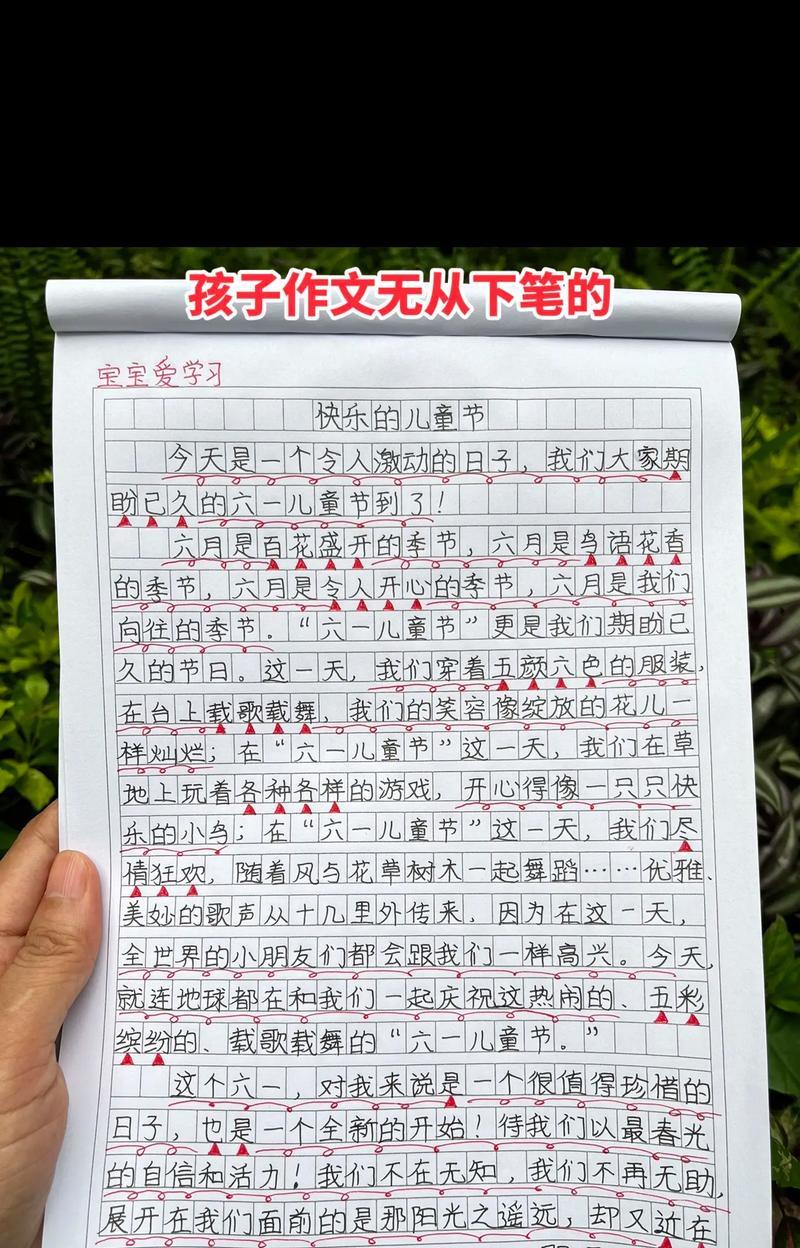 孩子作文无从下笔的
宝宝爱学习
快乐的儿童节
今天是一个令人激动的日子，我们大家期
盼已久的六一儿童节到了！
六月是百花盛开的季节，六月是鸟语花香
的季节，六月是令人开心的季节，六月是我们
向往的季节。“六一儿童节”更是我们期盼已
久的节日。这一天，我们穿着五颜六色的服装，
在台上载歌载舞，我们的笑容像绽放的花儿一
样灿烂；在“六一儿童节”这一天，我们在草
地上玩着各种各样的游戏，开心得像一只只快
乐的小鸟；在“六一儿童节”这一天，我们尽
情狂欢，随着风与花草树木一起舞蹈……优雅、
美妙的歌声从十几里外传来，因为在这一天，
全世界的小朋友们都会跟我们一样高兴。今天，
就连地球都在和我们一起庆祝这热闹的、五彩
缤纷的、载歌载舞的“六一儿童节。”
这个六一，对我来说是一个很值得珍惜的
日子，也是一个全新的开始！待我们以最春光
的自信和活力！我们不在无知，我们不再无助，
展开在我们面前的是那阳光之遥远，却又近在